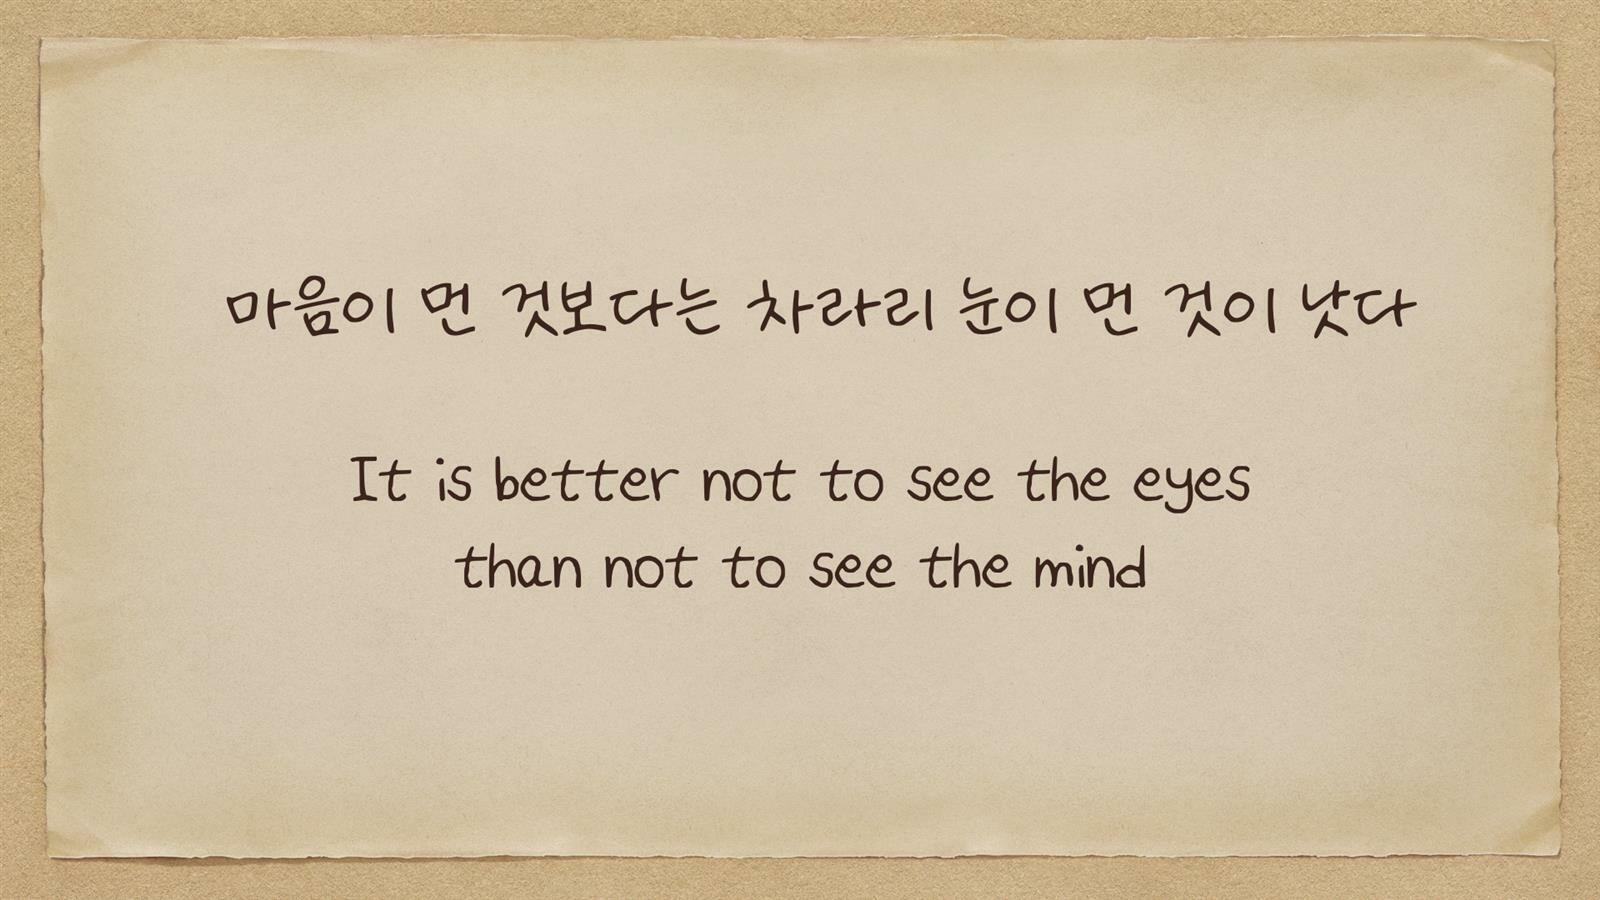 마음이 먼 것보다는 차라리 눈이 먼 것이 낫다
It is better not to see the eyes
than not to see the mind